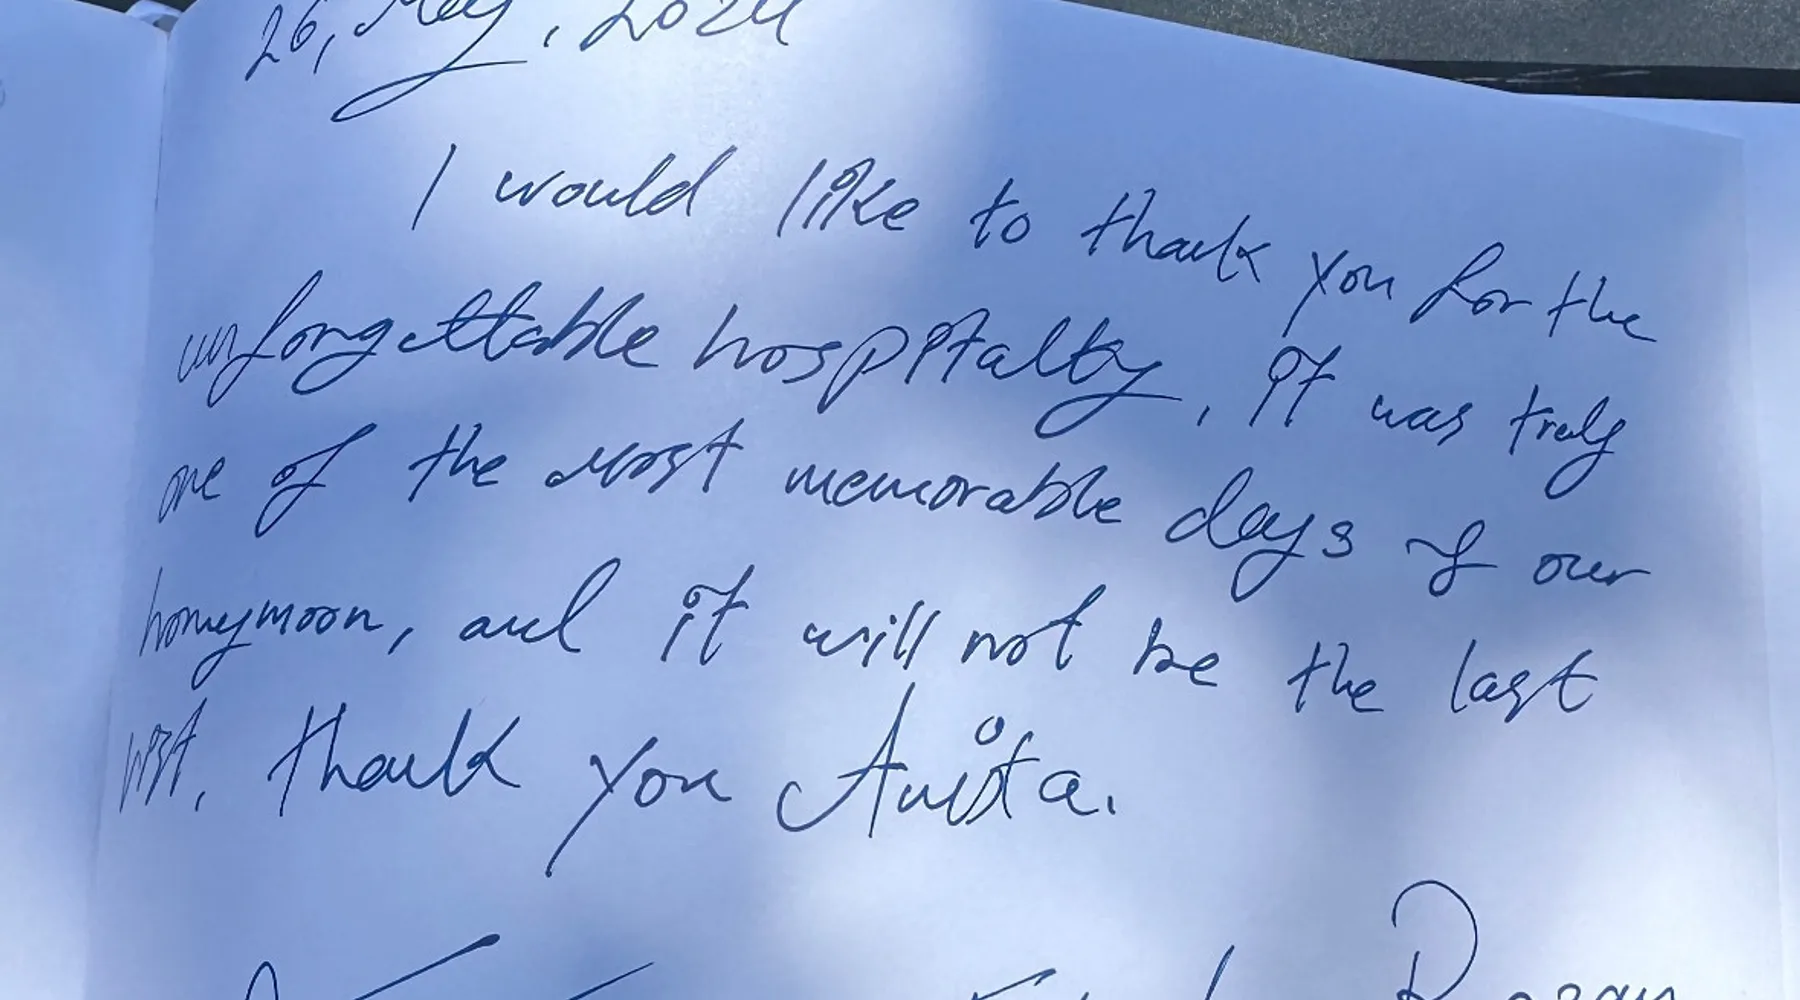 26, May, 2024
I would like to thank you for the
unforgettable hospitalty, it was truly
one of the most memorable days of our
honeymoon, and it will not be the last
visit, thank you Anita.